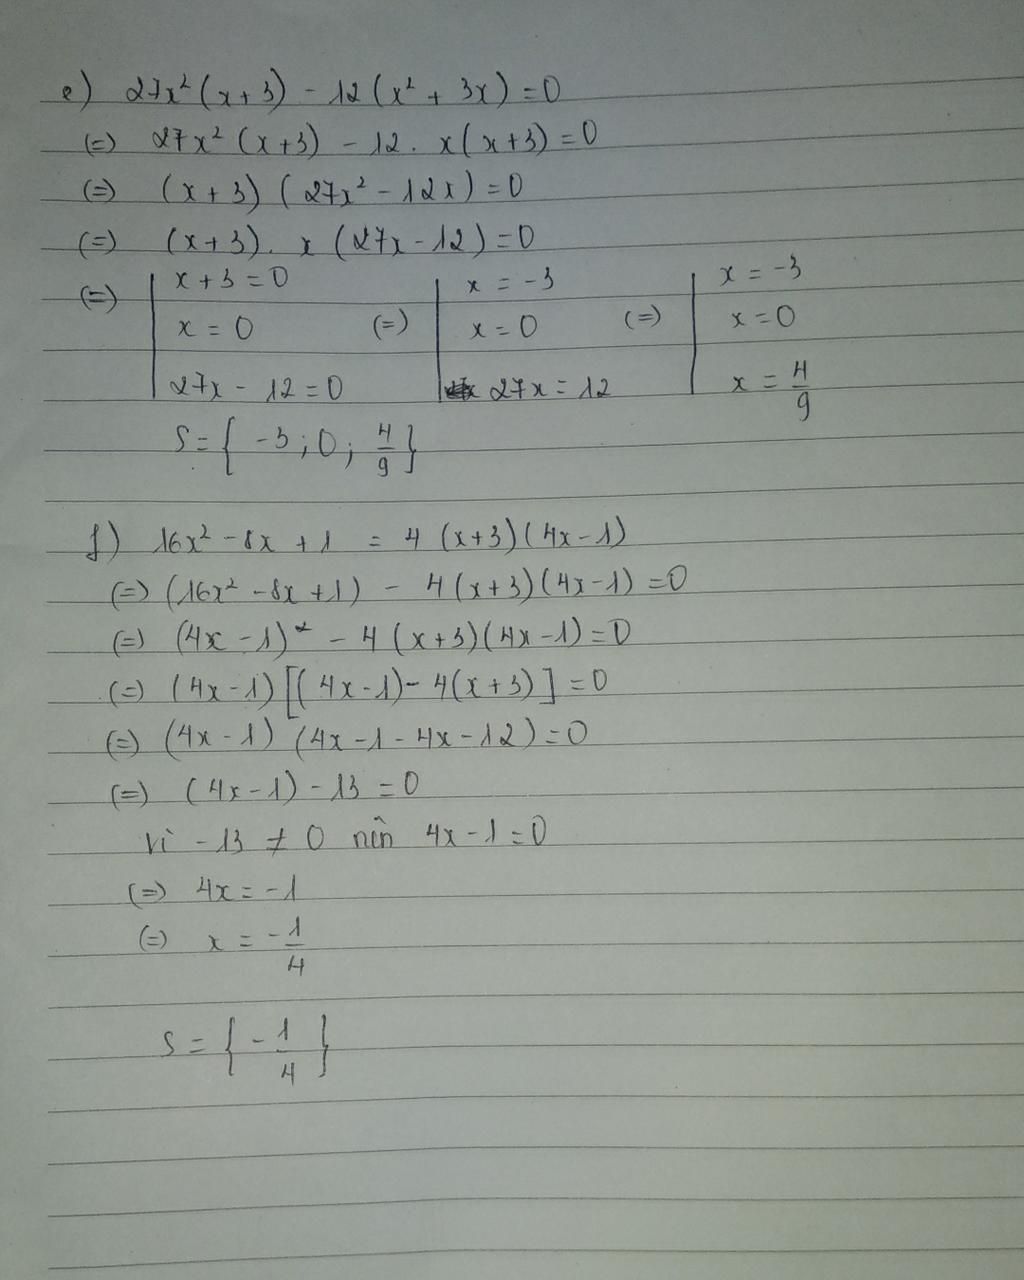 e) 27x² (x+3) - 12 (x² + 3x) = 0
(=) 27x² (x+3) - 12 . x(x+3) = 0
(=) (x+3) (27x² - 12x) = 0
(=) (x+3). x (27x - 12) = 0
(=) x+3=0 x = -3 x = -3
x = 0 (=) x = 0 (=) x = 0
27x - 12 = 0 27x = 12 x = 4/9
S = { -3 ; 0 ; 4/9 }
f) 16x² - 8x + 1 = 4 (x+3)(4x-1)
(=) (16x² - 8x + 1) - 4(x+3)(4x-1) = 0
(=) (4x - 1)² - 4 (x+3)(4x-1) = 0
(=) (4x-1) [(4x-1) - 4(x+3)] = 0
(=) (4x - 1) (4x - 1 - 4x - 12) = 0
(=) (4x-1) - 13 = 0
Vì - 13 ≠ 0 nên 4x - 1 = 0
(=) 4x = -1
(=) x = -1/4
S = { -1/4 }